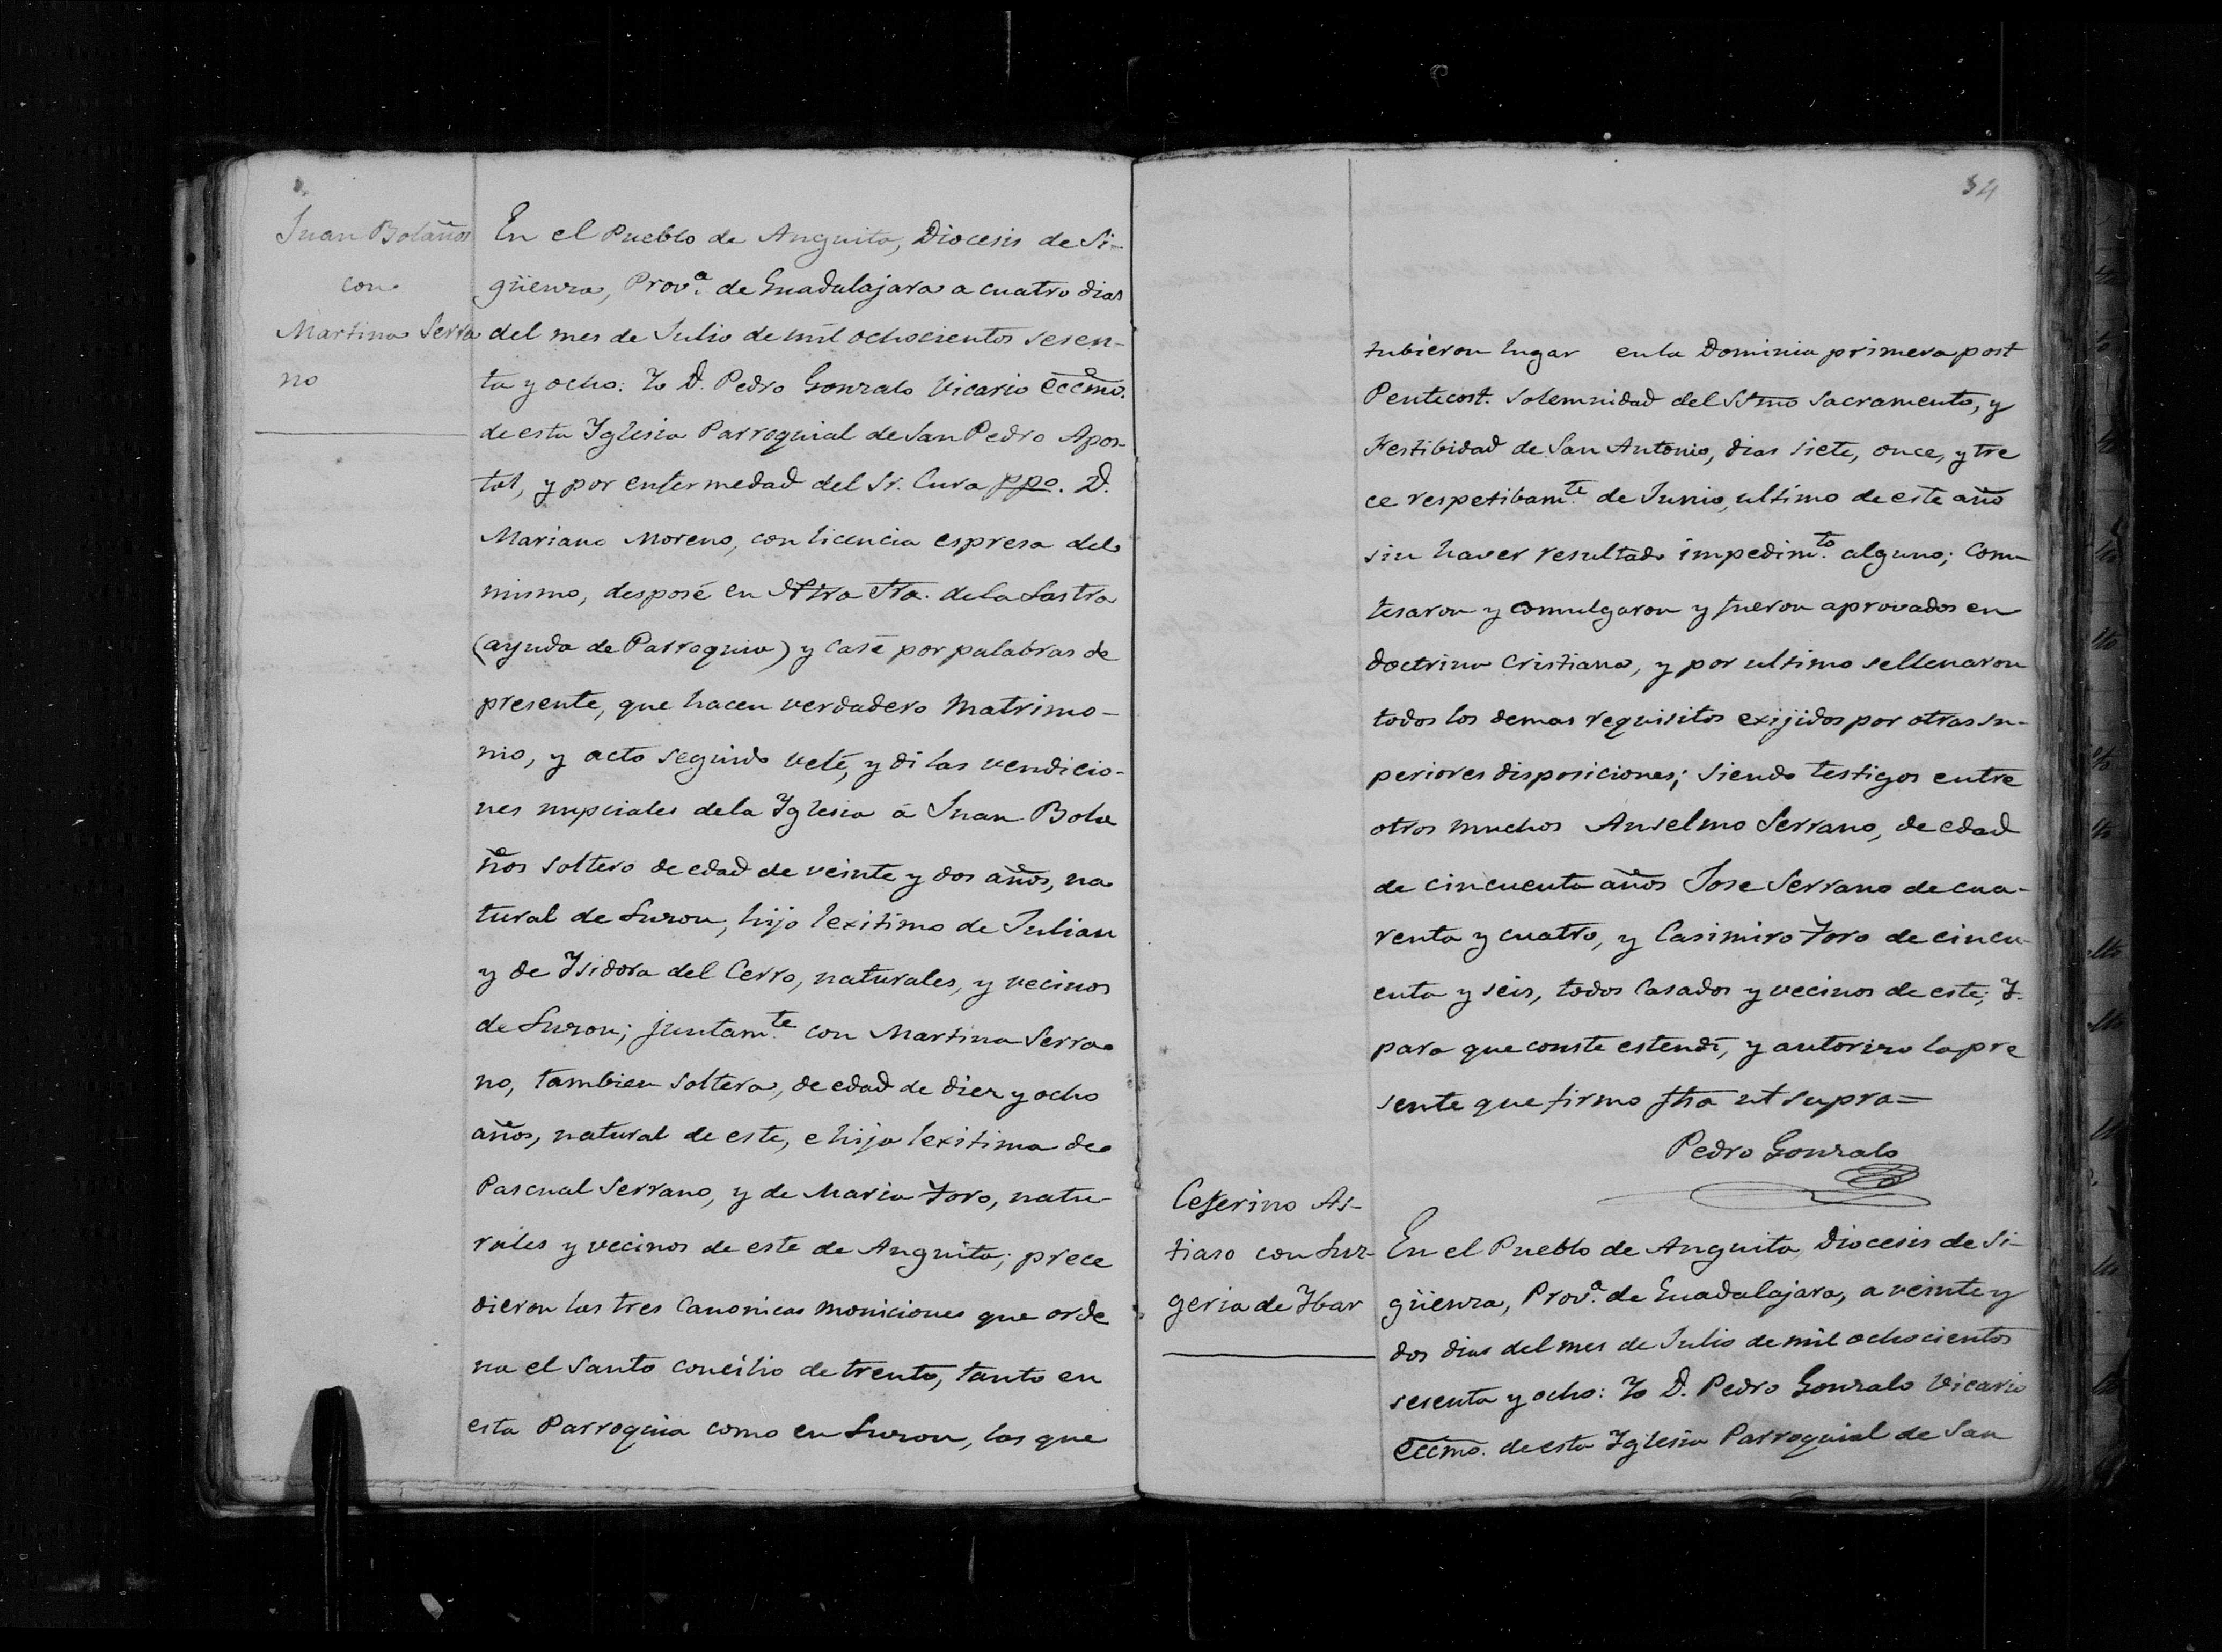 Juan Bolaños
con
Martina Serra
no
En el Pueblo de Anguita, Diocesis de Si-
güenza, Prov.ª de Guadalajara a cuatro dias
del mes de Julio de mil ochocientos sesen-
ta y ocho: Yo D. Pedro Gonzalo Vicario Eccmo.
de esta Yglesia Parroquial de San Pedro Apos-
tol, y por enfermedad del Sr. Cura ppo. D.
Mariano Moreno, con licencia espresa del
mismo, desposé en Ntra Sra. de la Lastra
(ayuda de Parroquia) y casé por palabras de
presente, que hacen verdadero Matrimo-
nio, y acto seguido velé, y di las vendicio-
nes nupciales dela Yglesia á Juan Bola
ños soltero de edad de veinte y dos años, na
tural de Luzon, hijo lexitimo de Julian
y de Ysidora del Cerro, naturales, y vecinos
de Luzon; juntam.te con Martina Serra
no, tambien soltera, de edad de diez y ocho
años, natural de este, e hija lexitima de
Pascual Serrano, y de Maria Foro, natu-
rales y vecinos de este de Anguita; prece
dieron las tres Canonicas moniciones que orde
na el Santo concilio de trento, tanto en
esta Parroquia como en Luzon, las que
34
tubieron lugar en la Dominia primera post
Pentecost. solemnidad del SSmo Sacramento, y
Festibidad de San Antonio, dias siete, once, y tre
ce respetibam.te de Junio, ultimo de este año
sin haver resultado impedim.to alguno; Com-
fesaron y comulgaron y fueron aprovados en
doctrina Cristiana, y por ultimo se llenaron
todos los demas requisitos exijidos por otras su-
periores disposiciones; siendo testigos entre
otros muchos Anselmo Serrano, de edad
de cincuenta años Jose Serrano de cua-
renta y cuatro, y Casimiro Foro de cincu-
enta y seis, todos Casados y vecinos de este; Y
para que conste estendi, y autorizo la pre
sente que firmo fha ut supra=
Pedro Gonzalo
Ceferino As-
tiaso con Luz-
geria de Ybar
En el Pueblo de Anguita, Diocesis de Si-
güenza, Prov.ª de Guadalajara, a veinte y
dos dias del mes de Julio de mil ochocientos
sesenta y ocho: Yo D. Pedro Gonzalo Vicario
Eccmo. de esta Yglesia Parroquial de San